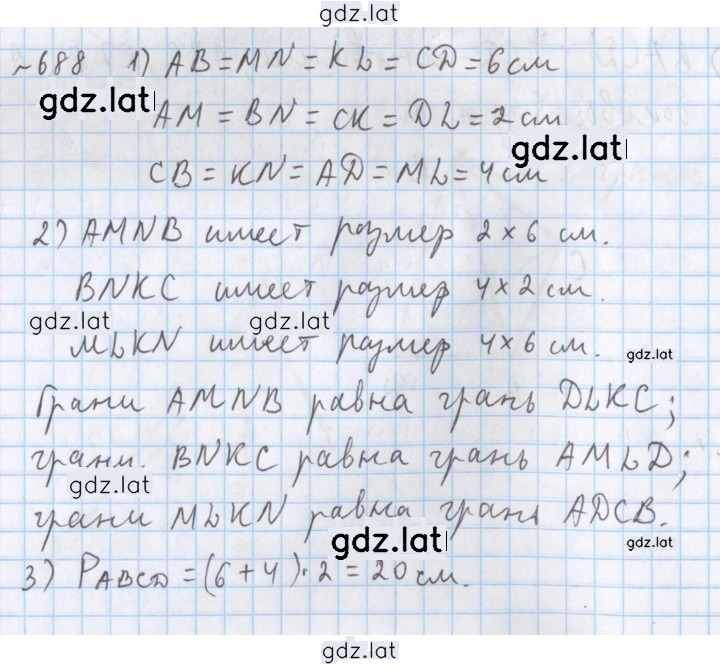 gdz.lat
№688 1) AB = MN = KL = CD = 6 см
gdz.lat
AM = BN = CK = DL = 2 см
gdz.lat
CB = KN = AD = ML = 4 см
2) AMNB имеет размер 2 × 6 см.
BNKC имеет размер 4 × 2 см.
gdz.lat gdz.lat
MLKN имеет размер 4 × 6 см.
gdz.lat
Грани AMNB равна грань DLKC;
грани BNKC равна грань AMLD;
gdz.lat
грани MLKN равна грань ADCB.
gdz.lat gdz.lat
3) PABCD = (6 + 4) · 2 = 20 см.
gdz.lat